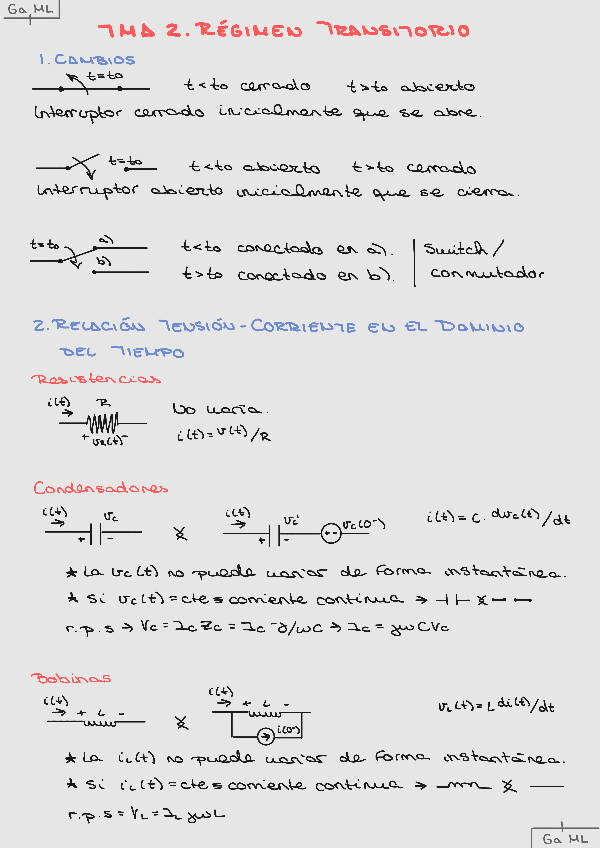 Ga ML
TMA 2. RÉGIMEN TRANSITORIO
1. CAMBIOS
t=to
t<to cerrado t>to abierto
Interruptor cerrado inicialmente que se abre.
t=to
t<to abierto t>to cerrado
Interruptor abierto inicialmente que se cierra.
t=to a) b)
t<to conectado en a).
t>to conectado en b).
Switch/
conmutador
2. RELACIÓN TENSIÓN-CORRIENTE EN EL DOMINIO
DEL TIEMPO
Resistencias
i(t) R
+ vR(t) -
No varía.
i(t)=v(t)/R
Condensadores
i(t) vc + -
i(t) vc' + - vc(0⁻)
i(t)=C·dvc(t)/dt
* La vc(t) no puede variar de forma instantánea.
* Si vc(t)=cte s corriente continua →
r.p.s → Vc = Ic Zc = Ic -j/ωC → Ic = jωCVc
Bobinas
i(t) + L -
i(t) + L - i(0⁻)
vL(t)=L di(t)/dt
* La iL(t) no puede variar de forma instantánea.
* Si iL(t)=cte s corriente continua →
r.p.s = VL = IL jωL
Ga ML